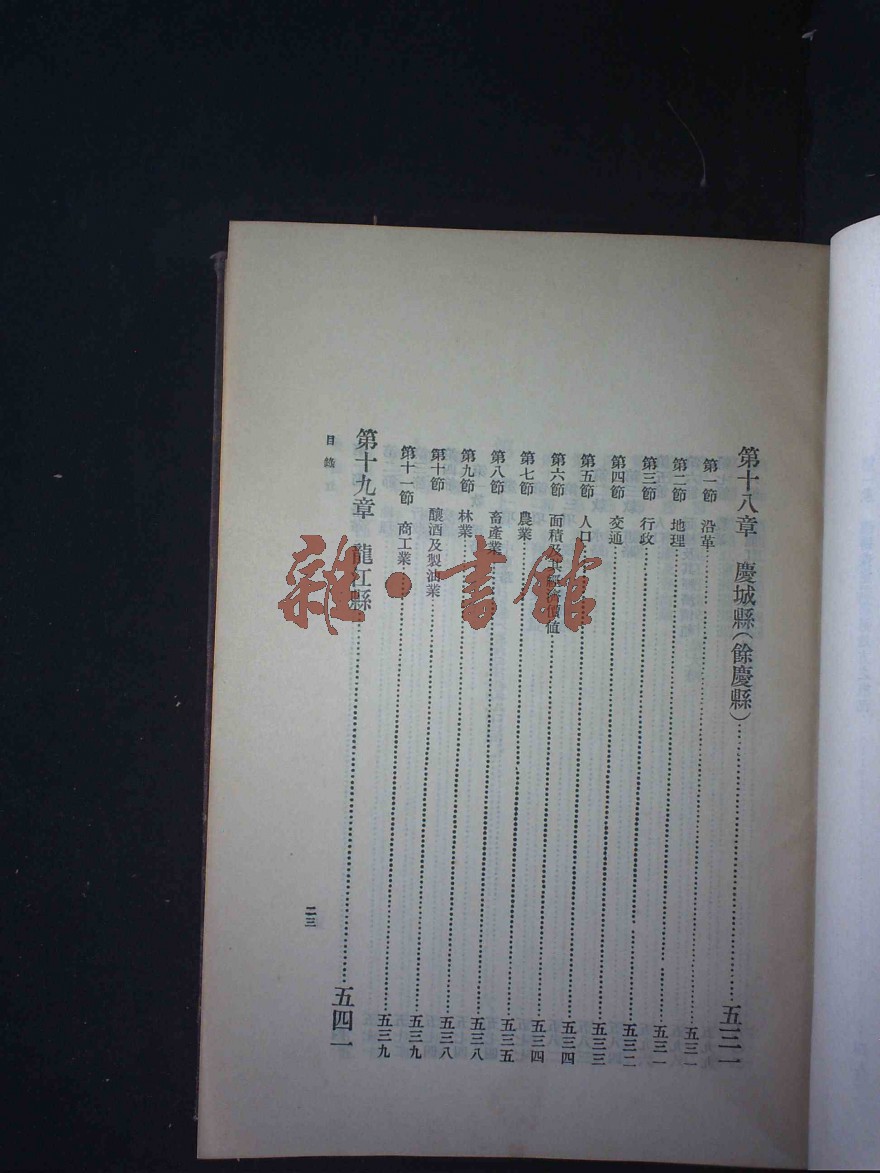 第十八章　慶城縣(餘慶縣)……五三一
第一節　沿革……五三一
第二節　地理……五三一
第三節　行政……五三一
第四節　交通……五三二
第五節　人口……五三三
第六節　面積及其經濟價值……五三四
第七節　農業……五三四
第八節　畜產業……五三五
第九節　林業……五三八
第十節　釀酒及製油業……五三八
第十一節　商工業……五三九
第十九章　龍江縣……五四一
目錄
二三
雜·書館